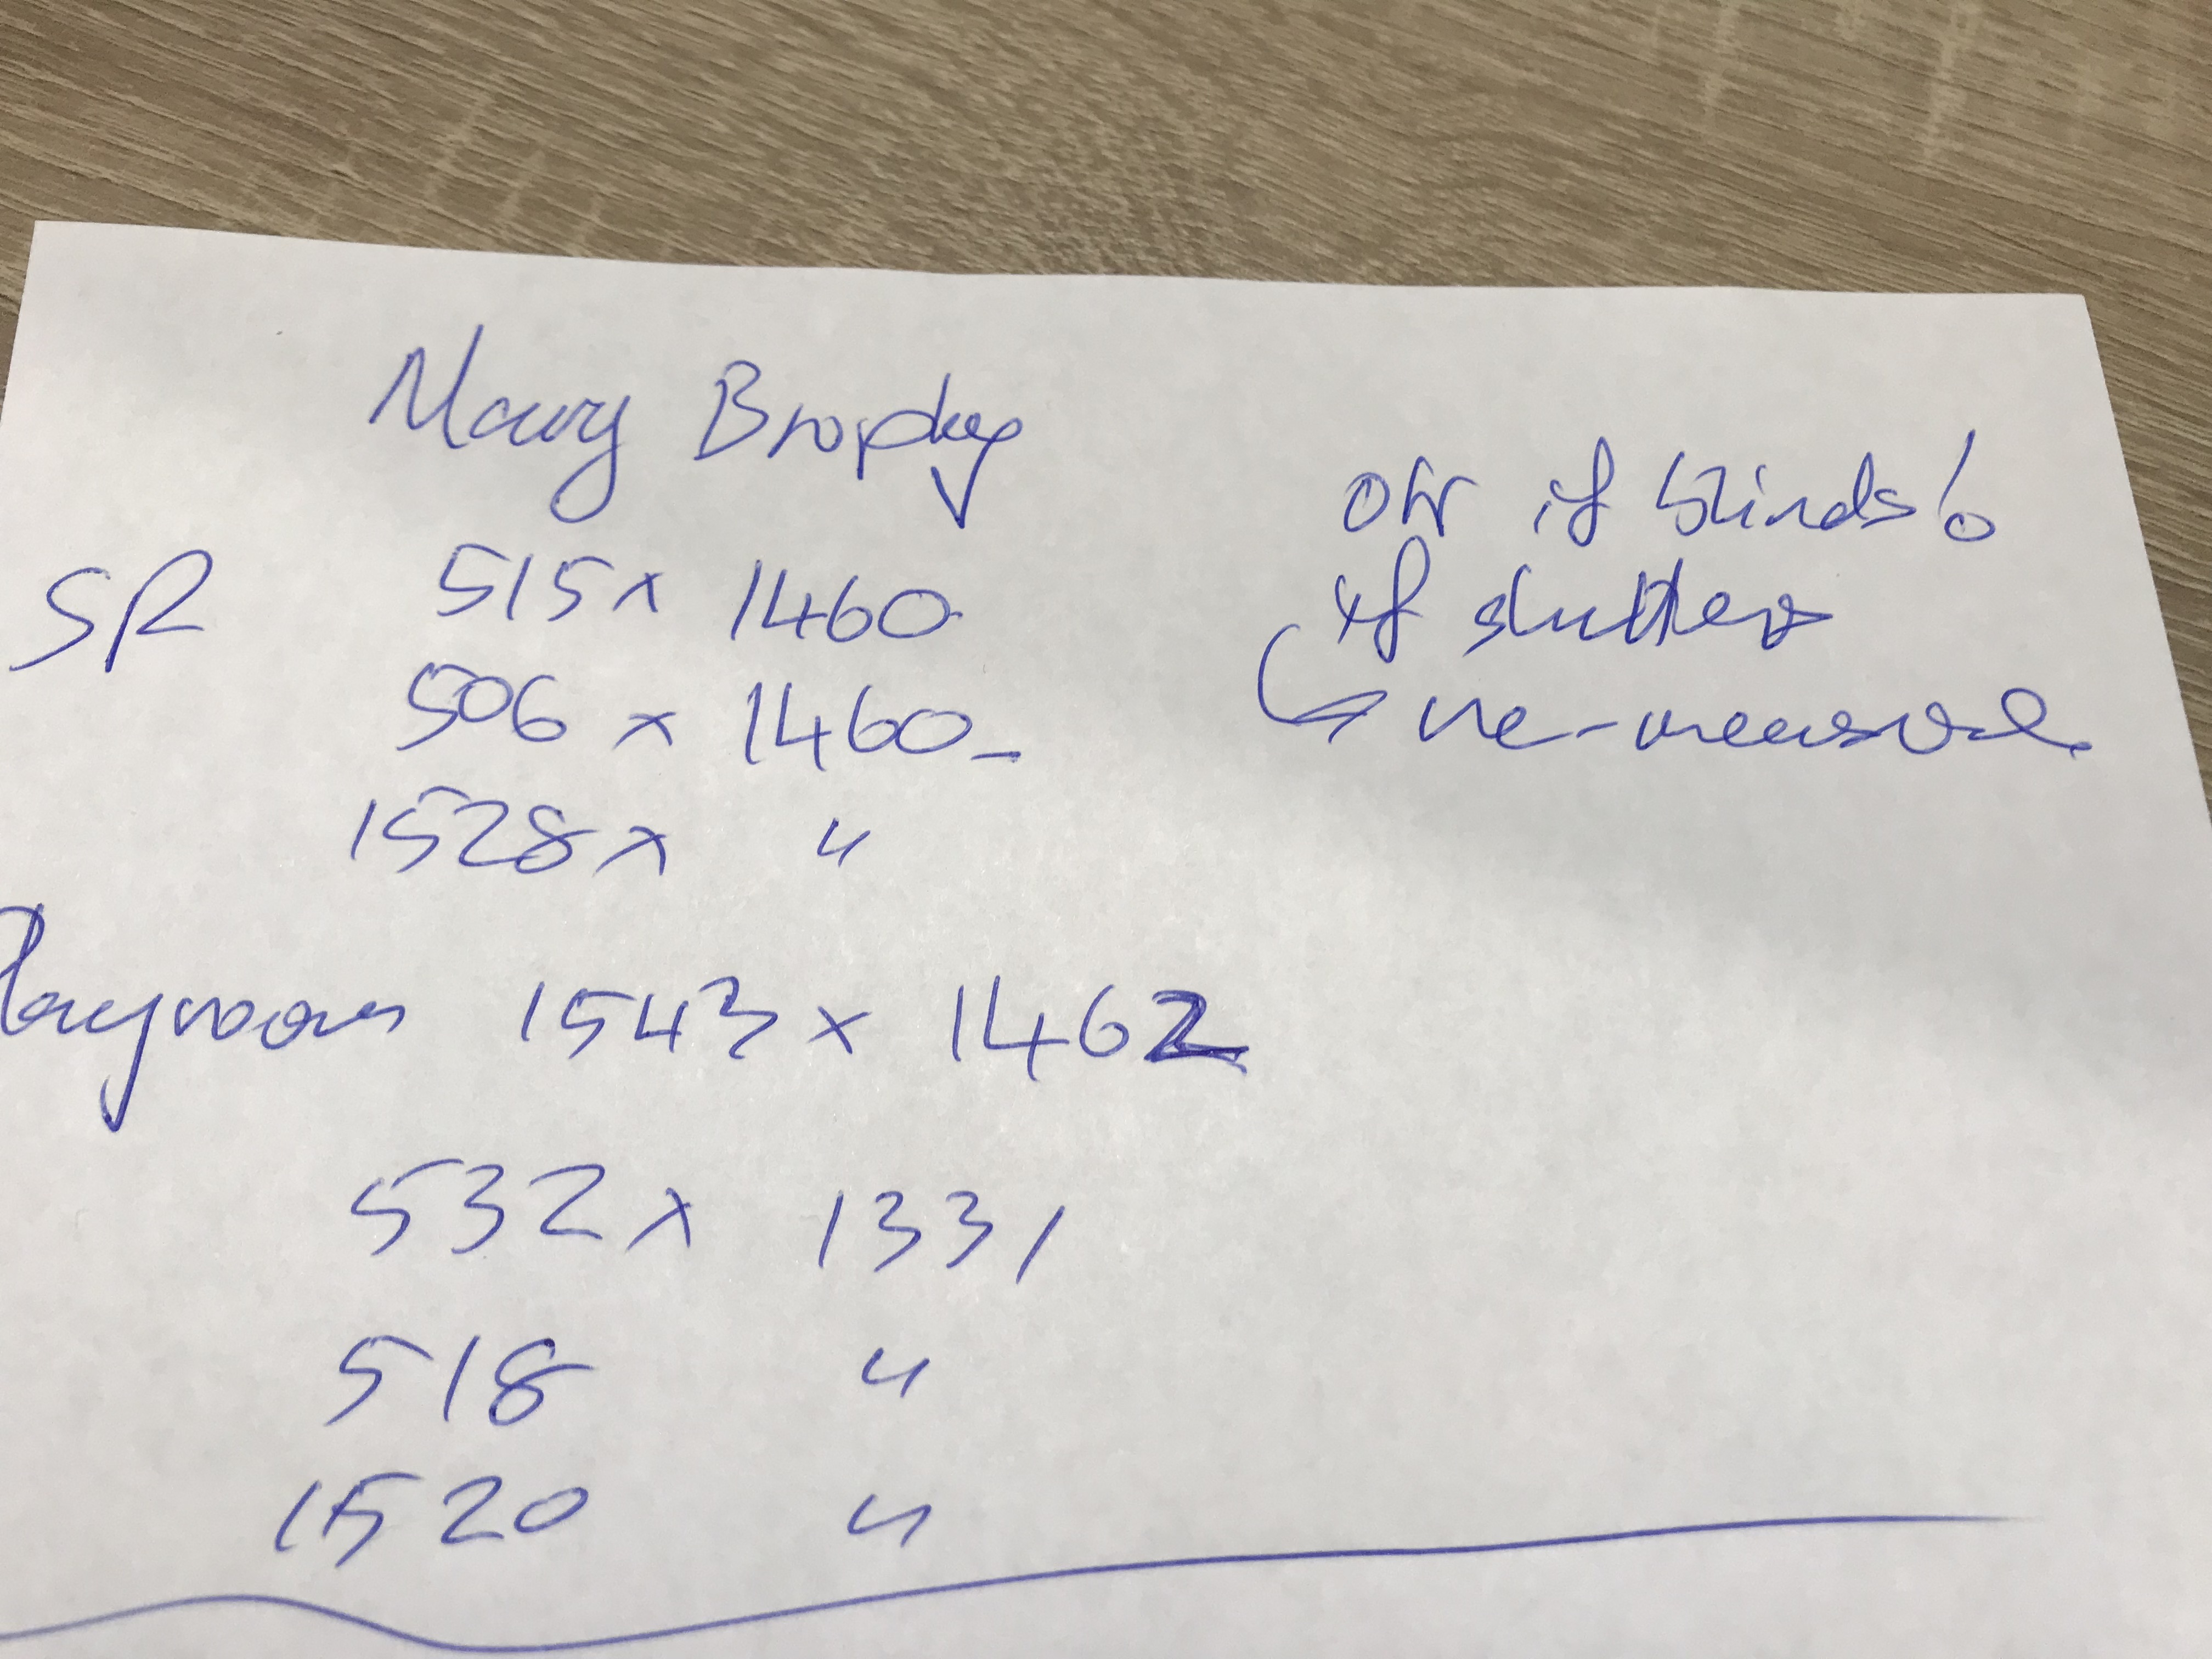 Mary Brophy
OK if blinds!
if shutters
↳ re-measure
SR 515 x 1460
506 x 1460
1528 x "
Playroom 1543 x 1462
532 x 1331
518 "
1520 "